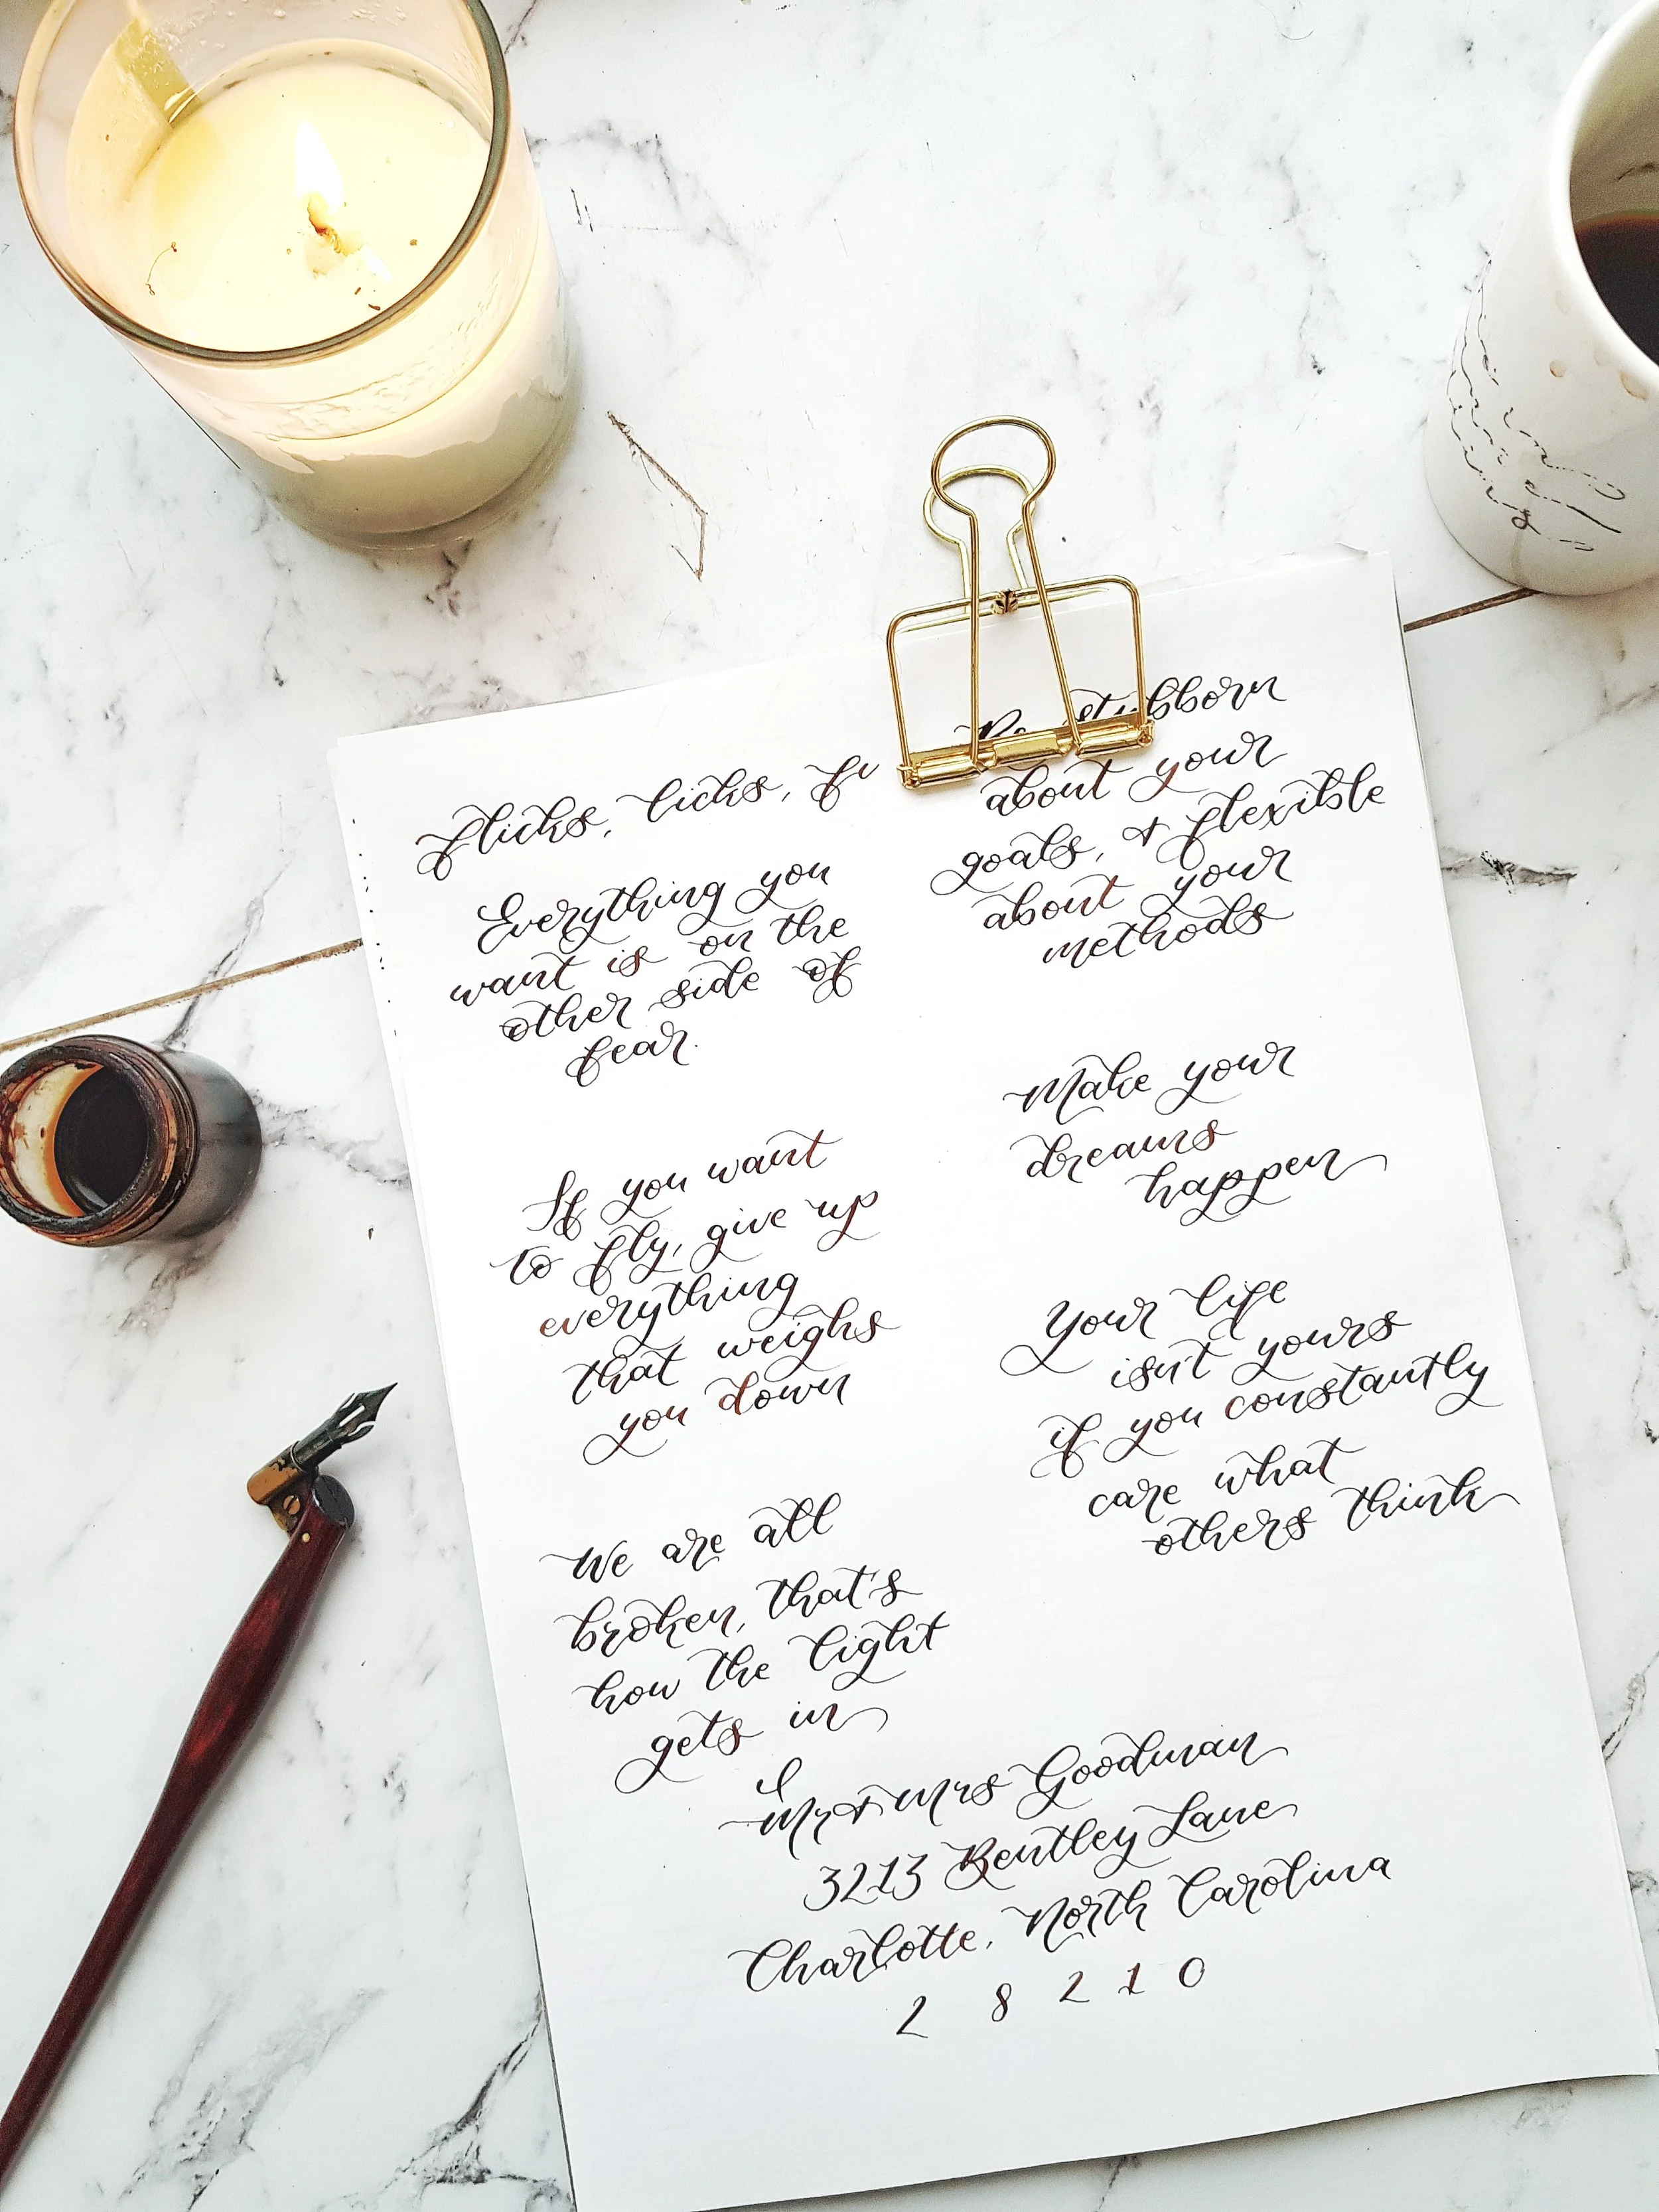 flicks, licks, fu
Everything you
want is on the
other side of
fear.
If you want
to fly, give up
everything
that weighs
you down
We are all
broken, that's
how the light
gets in
Be stubborn
about your
goals, & flexible
about your
methods
Make your
dreams
happen
Your life
isn't yours
if you constantly
care what
others think
Mr & Mrs Goodman
3213 Bentley Lane
Charlotte, North Carolina
2 8 2 1 0